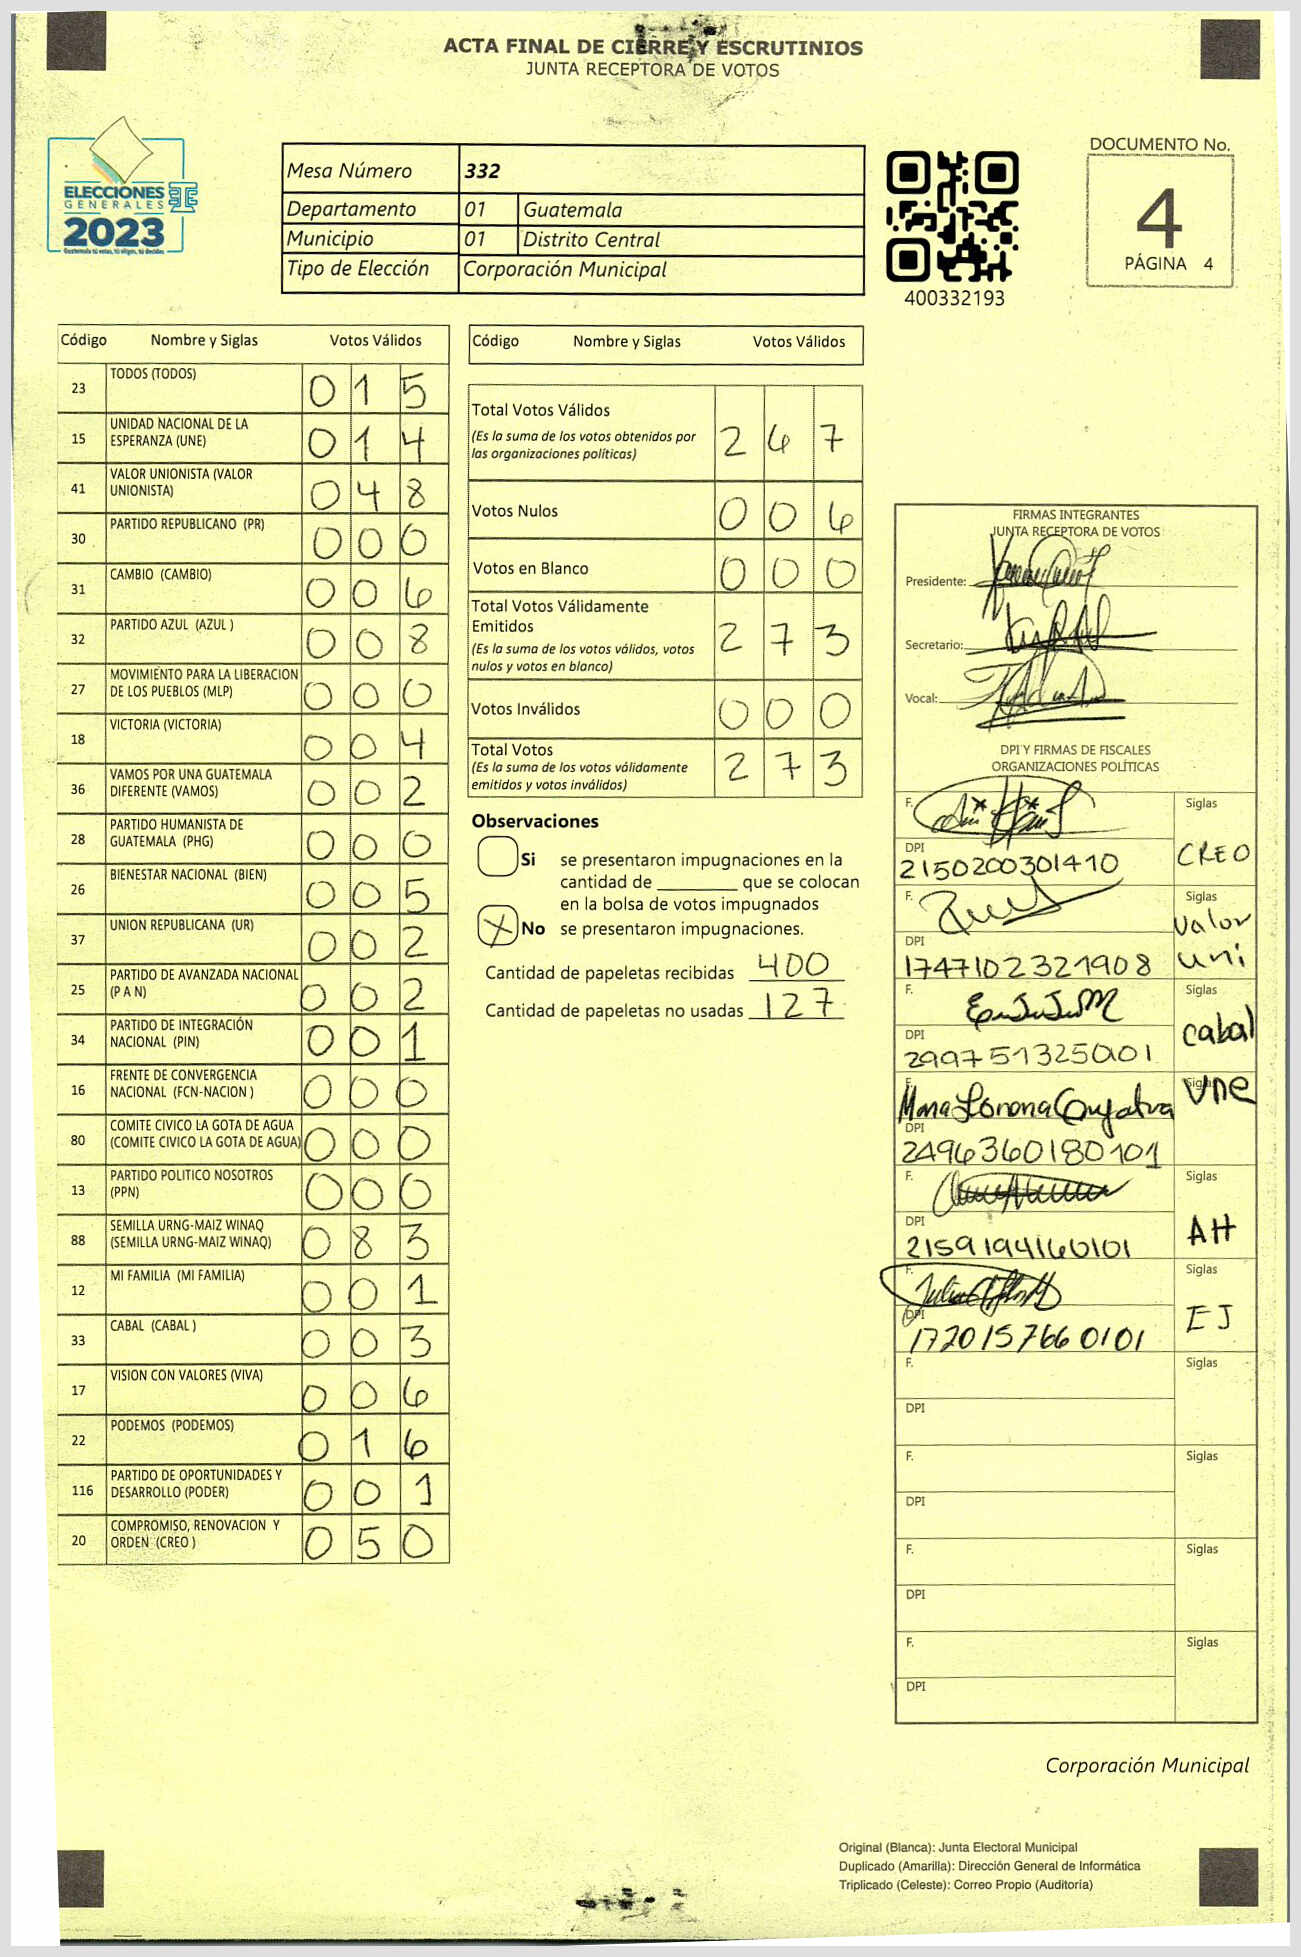 ACTA FINAL DE CIERRE Y ESCRUTINIOS
JUNTA RECEPTORA DE VOTOS
ELECCIONES
GENERALES
2023
Guatemala tú votas, tú eliges, tú decides
Mesa Número 332
Departamento 01 Guatemala
Municipio 01 Distrito Central
Tipo de Elección Corporación Municipal
400332193
DOCUMENTO No.
4
PÁGINA 4
Código Nombre y Siglas Votos Válidos
23 TODOS (TODOS) 0 1 5
15 UNIDAD NACIONAL DE LA
ESPERANZA (UNE) 0 1 4
41 VALOR UNIONISTA (VALOR
UNIONISTA) 0 4 8
30 PARTIDO REPUBLICANO (PR) 0 0 0
31 CAMBIO (CAMBIO) 0 0 6
32 PARTIDO AZUL (AZUL ) 0 0 8
27 MOVIMIENTO PARA LA LIBERACION
DE LOS PUEBLOS (MLP) 0 0 0
18 VICTORIA (VICTORIA) 0 0 4
36 VAMOS POR UNA GUATEMALA
DIFERENTE (VAMOS) 0 0 2
28 PARTIDO HUMANISTA DE
GUATEMALA (PHG) 0 0 0
26 BIENESTAR NACIONAL (BIEN) 0 0 5
37 UNION REPUBLICANA (UR) 0 0 2
25 PARTIDO DE AVANZADA NACIONAL
(P A N) 0 0 2
34 PARTIDO DE INTEGRACIÓN
NACIONAL (PIN) 0 0 1
16 FRENTE DE CONVERGENCIA
NACIONAL (FCN-NACION ) 0 0 0
80 COMITE CIVICO LA GOTA DE AGUA
(COMITE CIVICO LA GOTA DE AGUA) 0 0 0
13 PARTIDO POLITICO NOSOTROS
(PPN) 0 0 0
88 SEMILLA URNG-MAIZ WINAQ
(SEMILLA URNG-MAIZ WINAQ) 0 8 3
12 MI FAMILIA (MI FAMILIA) 0 0 1
33 CABAL (CABAL ) 0 0 3
17 VISION CON VALORES (VIVA) 0 0 6
22 PODEMOS (PODEMOS) 0 1 6
116 PARTIDO DE OPORTUNIDADES Y
DESARROLLO (PODER) 0 0 1
20 COMPROMISO, RENOVACION Y
ORDEN (CREO ) 0 5 0
Código Nombre y Siglas Votos Válidos
Total Votos Válidos
(Es la suma de los votos obtenidos por
las organizaciones políticas) 2 6 7
Votos Nulos 0 0 6
Votos en Blanco 0 0 0
Total Votos Válidamente
Emitidos
(Es la suma de los votos válidos, votos
nulos y votos en blanco) 2 7 3
Votos Inválidos 0 0 0
Total Votos
(Es la suma de los votos válidamente
emitidos y votos inválidos) 2 7 3
Observaciones
Si se presentaron impugnaciones en la
cantidad de ________ que se colocan
en la bolsa de votos impugnados
X No se presentaron impugnaciones.
Cantidad de papeletas recibidas 400
Cantidad de papeletas no usadas 127
FIRMAS INTEGRANTES
JUNTA RECEPTORA DE VOTOS
Presidente:
Secretario:
Vocal:
DPI Y FIRMAS DE FISCALES
ORGANIZACIONES POLÍTICAS
F. Siglas
DPI
2150200301410 CREO
F. Siglas
Valor
DPI
1747102321908 uni
F. Siglas
DPI
2997513250101 cabal
F. Siglas
UNE
DPI
2496360180101
F. Siglas
DPI
2159194160101 AH
F. Siglas
DPI
1720157660101 EJ
F. Siglas
DPI
F. Siglas
DPI
F. Siglas
DPI
F. Siglas
DPI
Corporación Municipal
Original (Blanca): Junta Electoral Municipal
Duplicado (Amarilla): Dirección General de Informática
Triplicado (Celeste): Correo Propio (Auditoría)